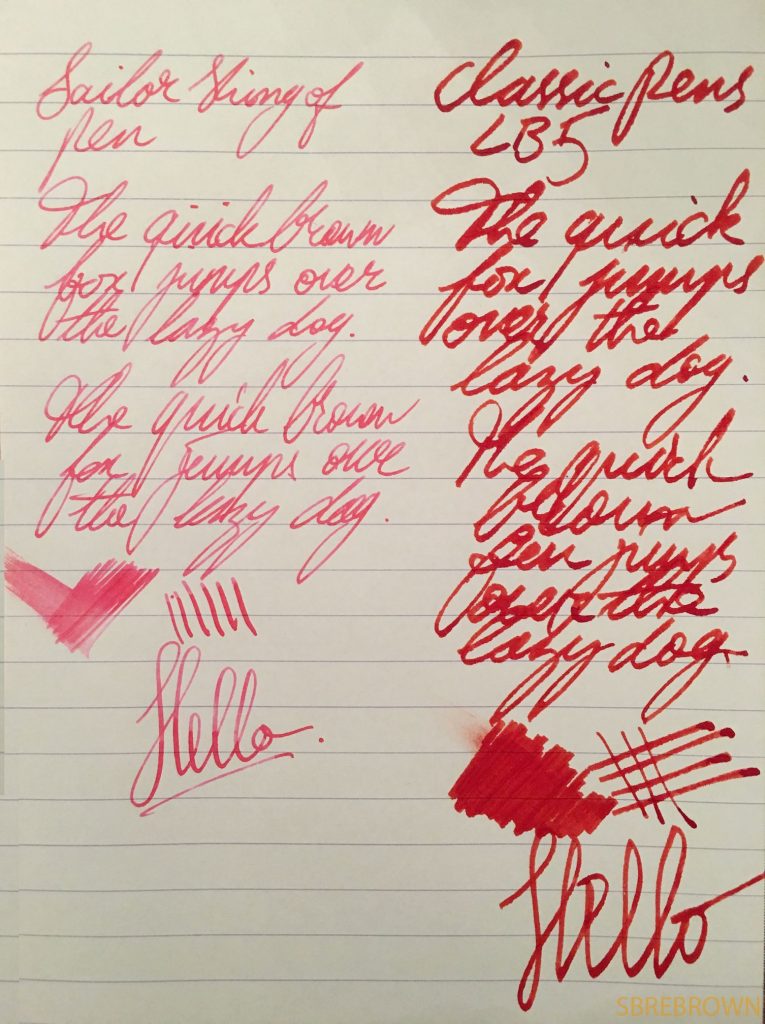 Sailor King of
pen
The quick brown
fox jumps over
the lazy dog.
The quick brown
fox jumps over
the lazy dog.
Hello.
Classic Pens
LB5
The quick
fox jumps
over the
lazy dog.
The quick
brown
jumps
over the
lazy dog
Hello
SBREBROWN